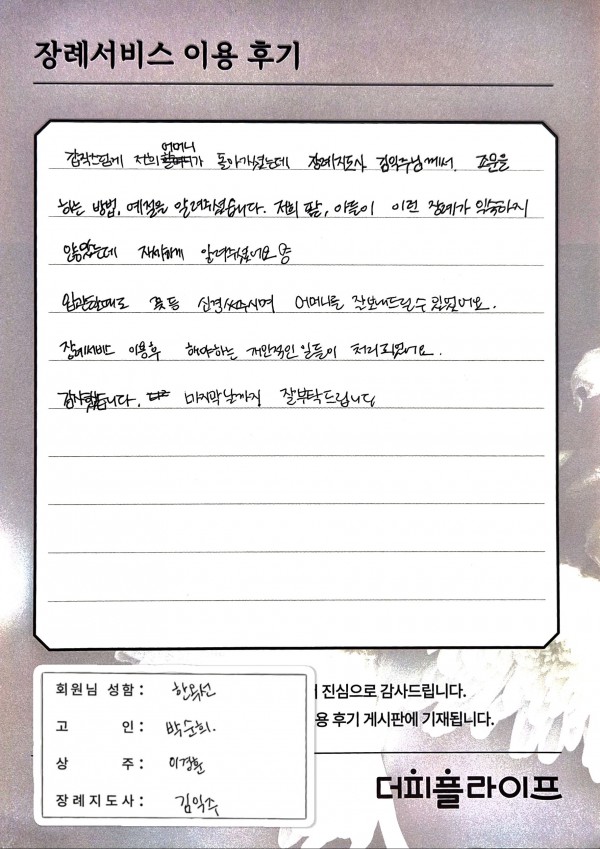 장례서비스 이용 후기
갑작스럽게 저희 어머니가 돌아가셨는데 장례지도사 김익주님께서. 조문을
하는 방법, 예절을 알려주셨습니다. 저희 딸, 아들이 이런 장례가 익숙하지
않았는데 자세하게 알려주셨어요
입관할때도 꽃등 신경써주시며 어머니를 잘보내드릴수 있었어요.
장례서비스 이용후 해야하는 저안적인 일들이 처리되었어요.
감사했습니다. 마지막날까지 잘부탁드립니다
회원님 성함 : 한옥선
고 인 : 박순희.
상 주 : 이경훈
장례지도사 : 김익주
진심으로 감사드립니다.
용 후기 게시판에 기재됩니다.
더피플라이프